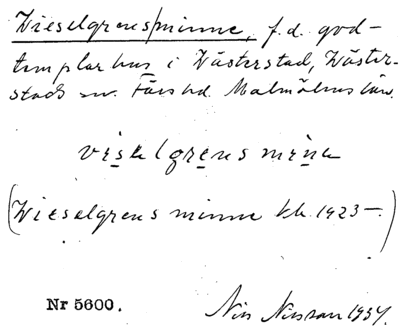 Wieselgrens minne, f.d. god-
templarhus i Västerstad, Väster-
stads sn. Färs hd. Malmöhus län.
viselgrens mine
(Wieselgrens minne kk. 1923–.)
Nr 5600.
Nils Nilsson 1934.